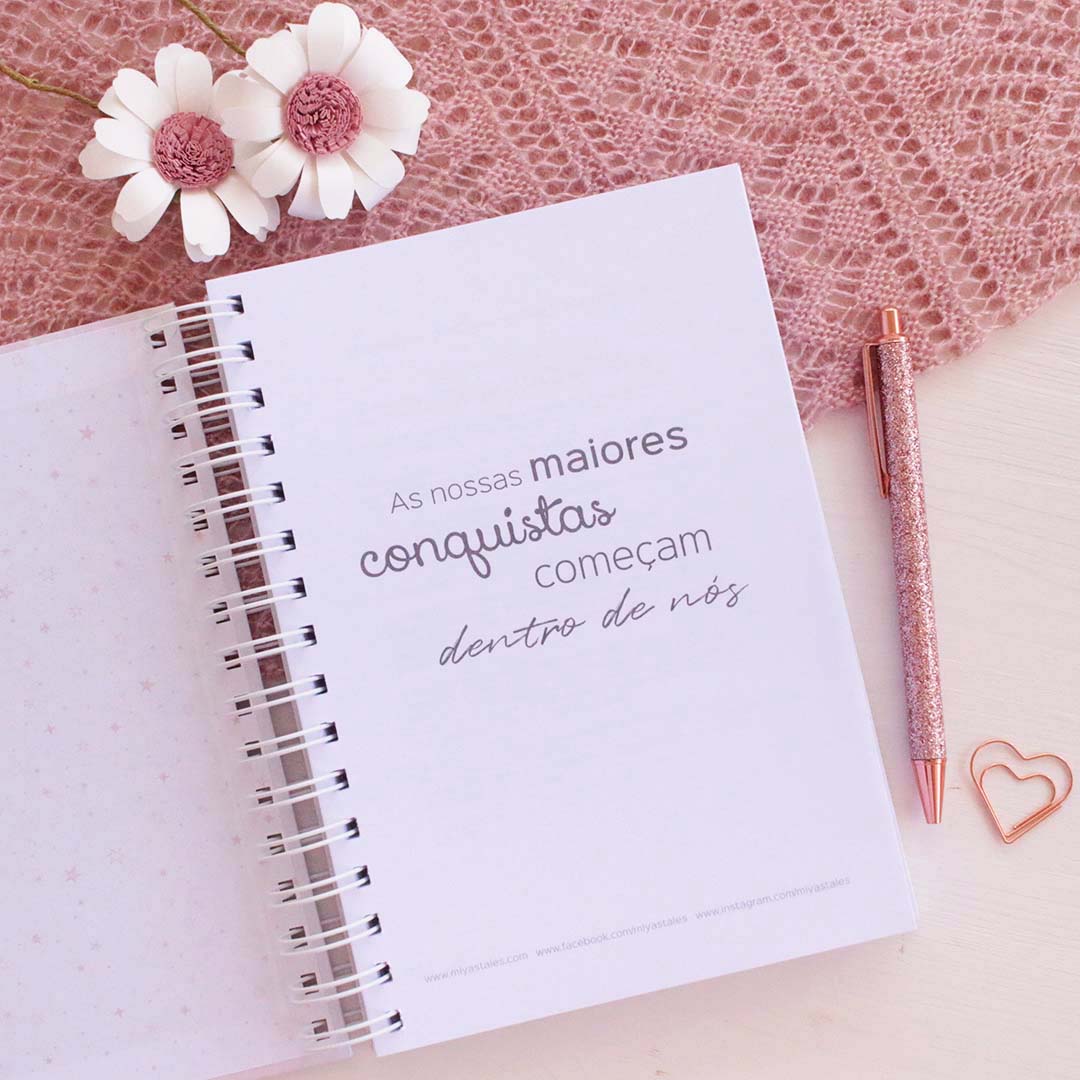 As nossas maiores
conquistas
começam
dentro de nós
www.miyastales.com www.facebook.com/miyastales www.instagram.com/miyastales